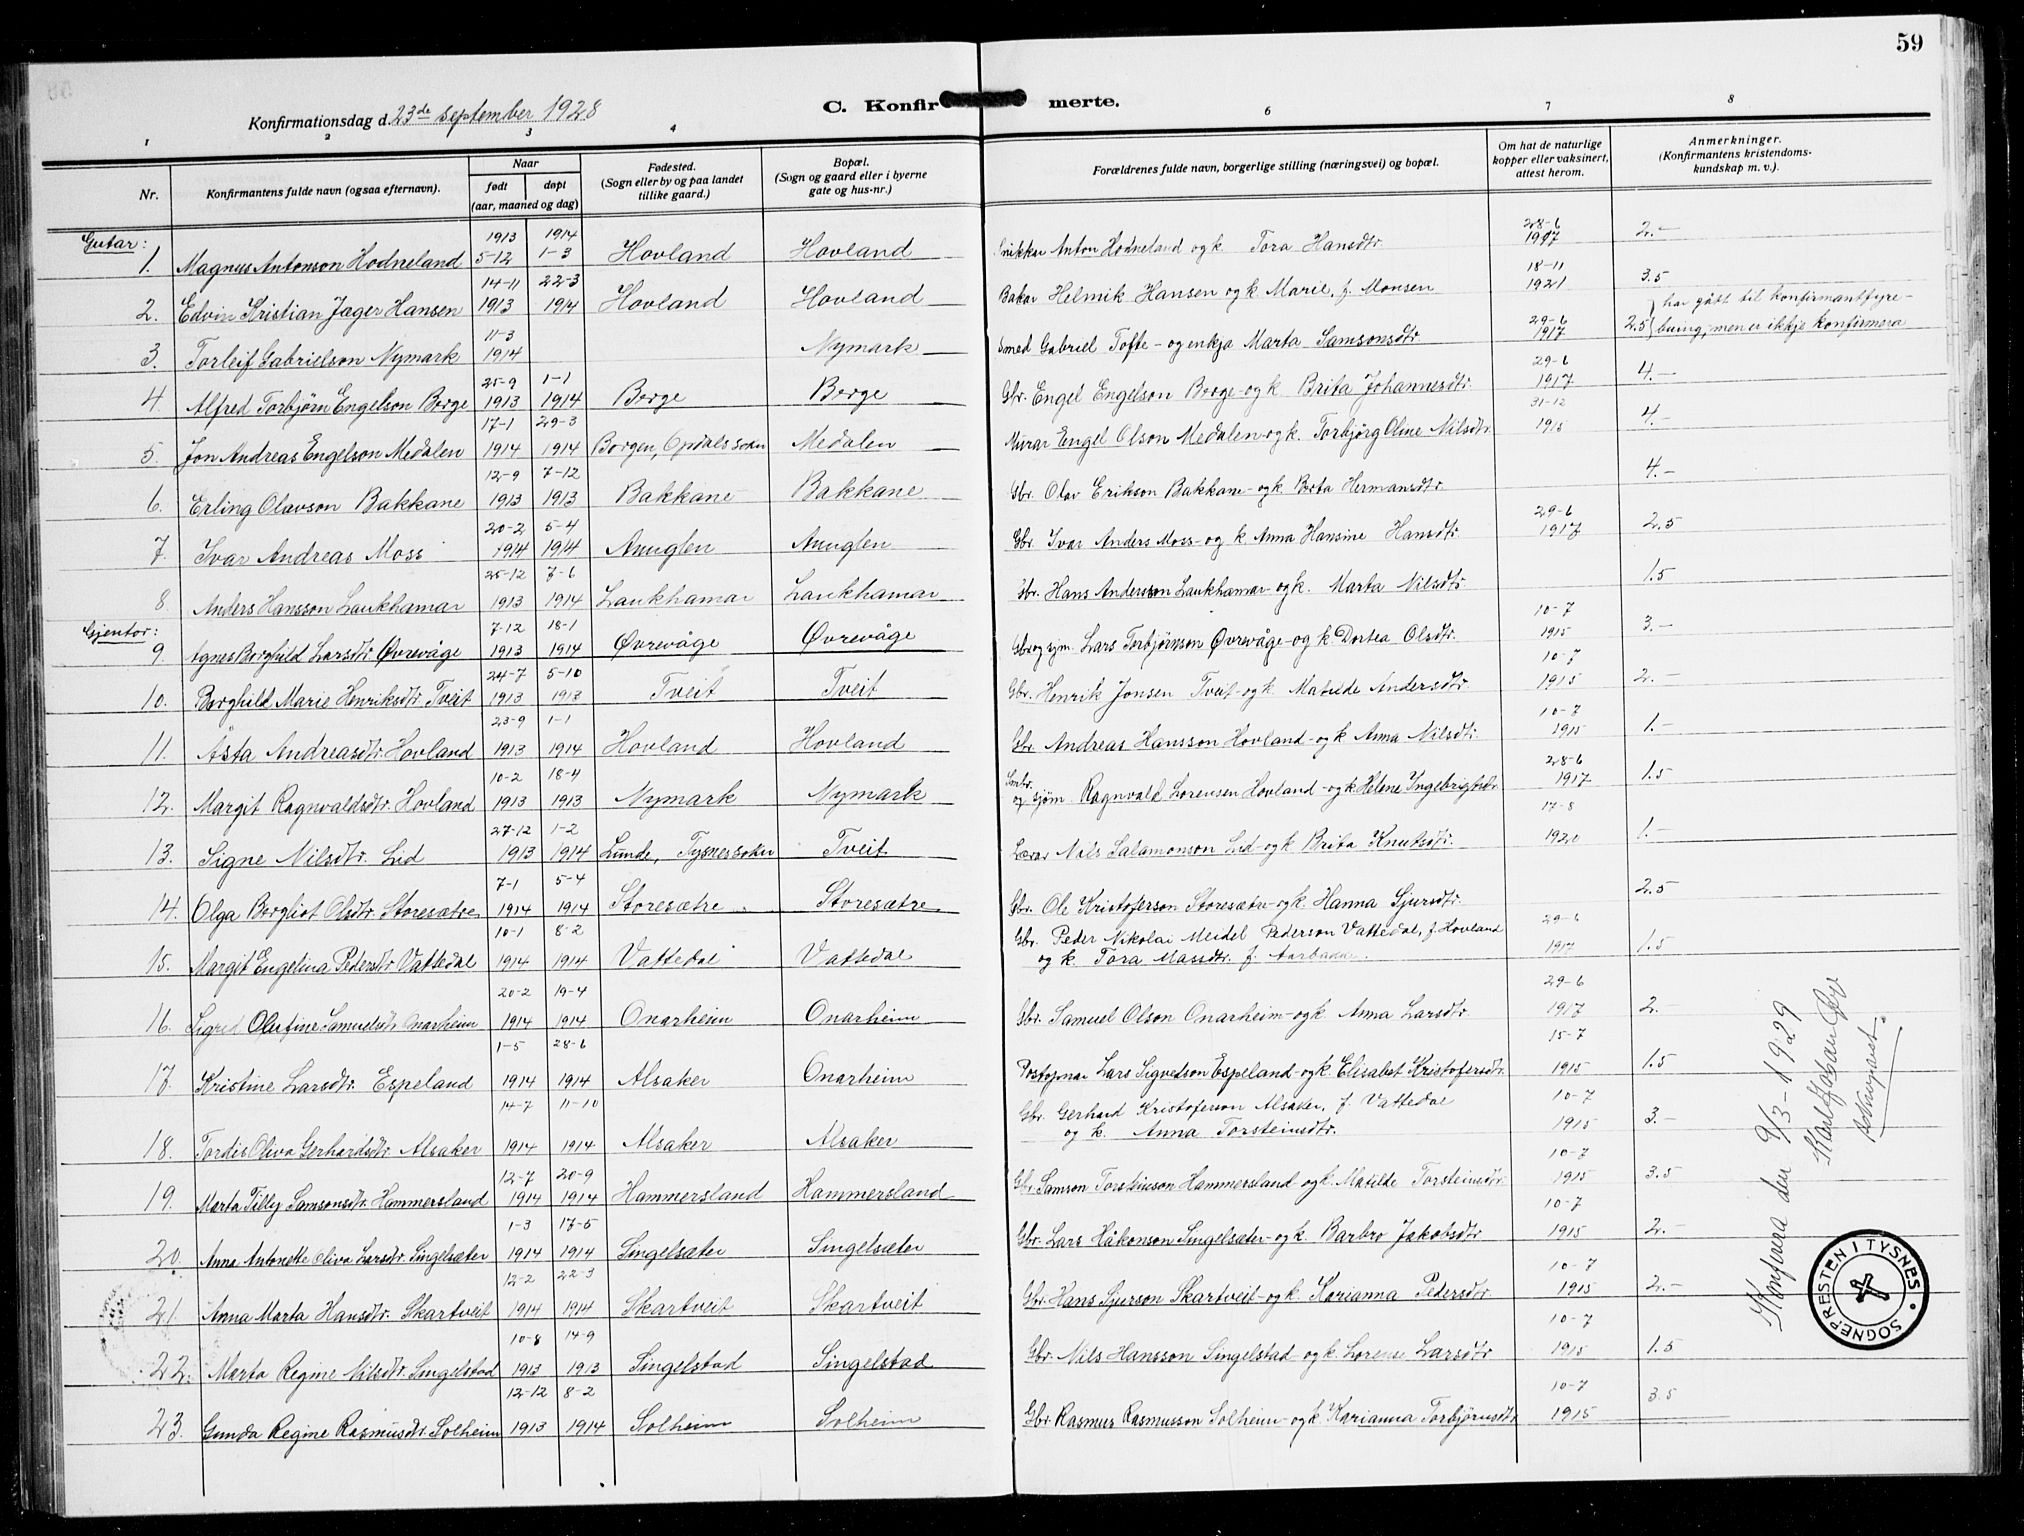 59
Konfirmationsdag d. 23de September 1928
C. Konfirmerte.
1 2 3 4 6 7 8
Nr.
Konfirmantens fulde navn (ogsaa efternavn).
Naar
født døpt
(aar, maaned og dag)
Fødested.
(Sogn eller by og paa landet
tillike gaard.)
Bopæl.
(Sogn og gaard eller i byerne
gate og hus-nr.)
Forældrenes fulde navn, borgerlige stilling (næringsvei) og bopæl.
Om hat de naturlige
kopper eller vaksinert,
attest herom.
Anmerkninger.
(Konfirmantens kristendoms-
kundskap m. v.).
Gutar:
1913 1914 28-6
1. Magnus Antonson Hodneland 5-12 1-3 Hovland Hovland Snikkar Anton Hodneland og k. Tora Hansdtr 1917 2.-
14-11 22-3 18-11
2. Edvin Kristian Jager Hansen 1913 1914 Hovland Hovland Bakar Helmik Hansen og k. Marie, f. Monsen 1921 3.5
11-3 29-6 har gått til konfirmantfyre-
3. Torleif Gabrielson Nymark 1914 Nymark Smed Gabriel Tofte - og enkja Marta Samsonsdtr 1917 2.5 buing, men er ikkje konfirmera
25-9 1-1 29-6
4. Alfred Torbjørn Engelson Borge 1913 1914 Borge Borge Gbr. Engel Engelson Borge - og k. Brita Johannesdtr. 1917 4.-
17-1 29-3 31-12
5. Jon Andreas Engelson Medalen 1914 1914 Borgen, Opdals sokn Medalen Murar Engel Olson Medalen - og k. Torbjørg Oline Nilsdtr. 1915 4.-
12-9 7-12
6. Erling Olavson Bakkane 1913 1913 Bakkane Bakkane Gbr. Olav Erikson Bakkane - og k. Berta Hermansdtr 4.-
20-2 5-4 29-6
7. Ivar Andreas Moss 1914 1914 Anuglen Anuglen Gbr. Ivar Anders Moss - og k. Anna Hansine Hansdtr. 1917 2.5
25-12 7-6
8. Anders Hansson Laukhamar 1913 1914 Laukhamar Laukhamar Gbr. Hans Andersson Laukhamar - og k. Marta Nilsdtr. 1.5
Gjentor:
7-12 18-1 10-7
9. Agnes Borghild Larsdtr. Øvrevåge 1913 1914 Øvrevåge Øvrevåge Gbr og sjm. Lars Torbjørnson Øvrevåge - og k. Dortea Olsdtr. 1915 3.-
24-7 5-10 10-7
10. Borghild Marie Henriksdtr. Tveit 1913 1913 Tveit Tveit Gbr. Henrik Jonsen Tveit - og k. Matilde Andersdtr. 1915 2.-
23-9 1-1 10-7
11. Åsta Andreasdtr. Hovland 1913 1914 Hovland Hovland Gbr. Andreas Hansson Hovland - og k Anna Nilsdtr. 1915 1.-
10-2 18-4 28-6
12. Margit Ragnvaldsdtr. Hovland 1913 1913 Nymark Nymark og sjøm. Ragnvald Lorensen Hovland - og k Helene Ingebrigtsdr. 1917 1.5
27-12 1-2 17-8
13. Signe Nilsdtr. Lid 1913 1914 Lunde, Tysnes sokn Tveit Lærar Nils Salamonson Lid - og k. Brita Knutsdtr. 1920 1.-
7-1 5-4
14. Olga Bergliot Olsdtr. Storesætre 1914 1914 Storesætre Storesætre Gbr. Ole Kristoferson Storesætre - og k. Hanna Sjursdtr. 2.5
10-1 8-2 Gbr. Peder Nikolai Meidel Pederson Vattedal, f. Hovland 29-6
15. Margit Engelina Pedersdtr Vattedal 1914 1914 Vattedal Vattedal og k. Tora Massdtr. f. Aarbakka. 1917 1.5
20-2 19-4 29-6
16. Sigrid Olufine Samuelsdtr. Onarheim 1914 1914 Onarheim Onarheim Gbr. Samuel Olson Onarheim - og k. Anna Larsdtr. 1917 2.-
1-5 28-6 15-7
17. Kristine Larsdtr. Espeland 1914 1914 Alsaker Onarheim Postopnar Lars Sigvedson Espeland - og k. Elisabet Kristofersdtr. 1915 1.5
14-7 11-10 Gbr. Gerhard Kristoferson Alsaker, f. Vattedal 10-7
18. Tordis Oliva Gerhardsdtr. Alsaker 1914 1914 Alsaker Alsaker og k. Anna Torsteinsdtr. 1915 3.-
12-7 20-9 10-7
19. Marta Tilley Samsonsdtr. Hammersland 1914 1914 Hammersland Hammersland Gbr. Samson Torsteinson Hammersland og k. Matilde Torsteinsdtr. 1915 3.5
1-3 17-5 10-7
20. Anna Antonette Oliva Larsdtr. Singelsæter 1914 1914 Singelsæter Singelsæter Gbr. Lars Håkonson Singelsæter - og k. Barbro Jakobsdtr 1915 2.-
12-2 22-3 10-7
21. Anna Marta Hansdtr. Skartveit 1914 1914 Skartveit Skartveit Gbr. Hans Sjurson Skartveit - og k. Karianna Pedersdtr 1915 2.-
10-8 14-9 10-7
22. Marta Regine Nilsdtr. Singelstad 1913 1913 Singelstad Singelstad Gbr. Nils Hansson Singelstad - og k. Lorense Larsdtr 1915 1.5
12-12 8-2 10-7
23. Gunda Regine Rasmusdtr. Solheim 1913 1914 Solheim Solheim Gbr. Rasmus Rasmusson Solheim - og k. Karianna Torbjørnsdtr 1915 3.5
den 9/3-1929
SOGNEPRESTEN I TYSNES